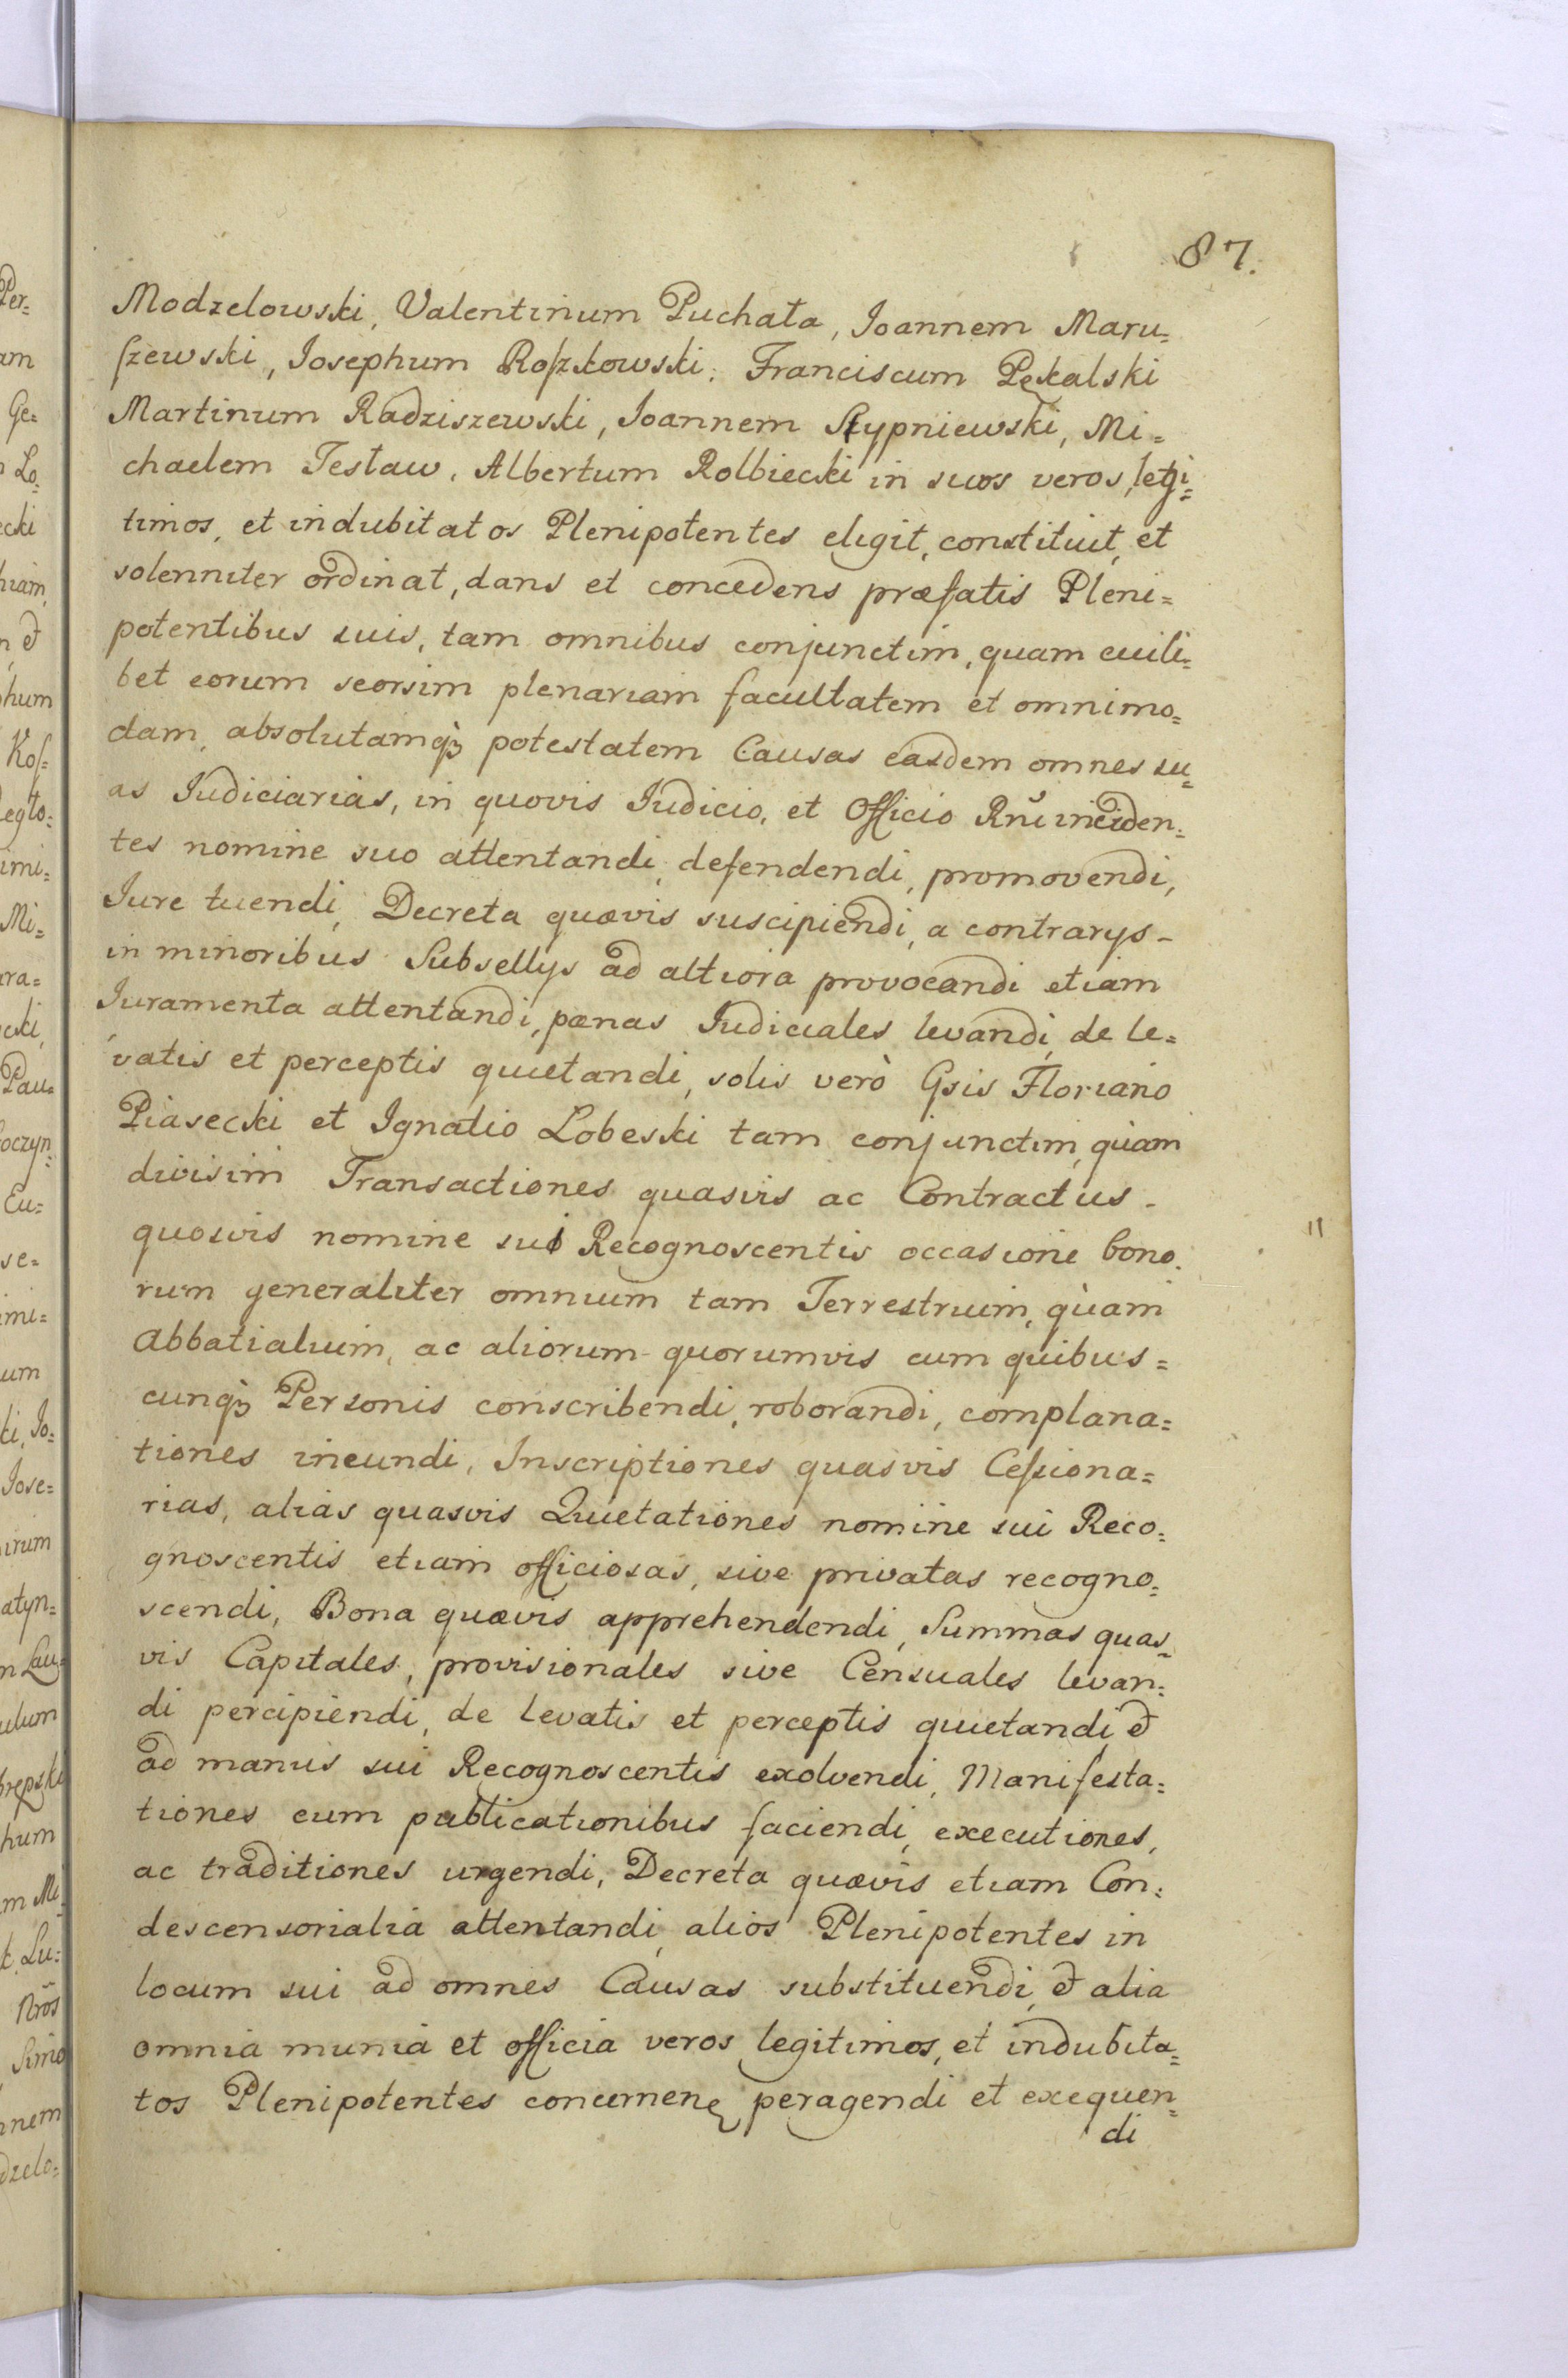 87.
Modzelowski, Valentinum Puchata, Joannem Maru=
szewski, Josephum Roszkowski, Franciscum Pękalski
Martinum Radziszewski, Joannem Stypniewski, Mi=
chaelem Testaw, Albertum Rolbiecki in suos veros, legi=
timos, et indubitatos Plenipotentes eligit, constituit, et
solenniter ordinat, dans et concedens præfatis Pleni=
potentibus suis, tam omnibus conjunctim, quam cuili=
bet eorum seorsim plenariam facultatem et omnimo=
dam, absolutamq3 potestatem Causas easdem omnes su=
as Judiciarias, in quovis Judicio, et Officio Rni inciden=
tes nomine suo attentandi, defendendi, promovendi,
Jure tuendi, Decreta quævis suscipiendi, a contrarys-
in minoribus Subsellys ad altiora provocandi etiam
Juramenta attentandi, pænas Judiciales levandi, de le=
vatis et perceptis quietandi, solis verò Gsis Floriano
Piasecki et Ignatio Lobeski tam conjunctim, quam
divisim Transactiones quasvis ac Contractus-
quosvis nomine sui Recognoscentis occasione bono=
rum generaliter omnium tam Terrestrium, quam
Abbatialium, ac aliorum quorumvis cum quibus=
cunq3 Personis conscribendi, roborandi, complana=
tiones ineundi, Inscriptiones quasvis Cessiona=
rias, alias quasvis Quietationes nomine sui Reco=
gnoscentis etiam officiosas, sive privatas recogno=
scendi, Bona quævis apprehendendi, Summas quas=
vis Capitales, provisionales sive Censuales levan=
di percipiendi, de levatis et perceptis quietandi, et
ad manus sui Recognoscentis exolvendi, Manifesta=
tiones cum publicationibus faciendi, executiones,
ac traditiones urgendi, Decreta quævis etiam Con=
descensorialia attentandi, alios Plenipotentes in
locum sui ad omnes Causas substituendi, et alia
omnia munia et officia veros, legitimos, et indubita=
tos Plenipotentes concernenę peragendi et exequen=
di